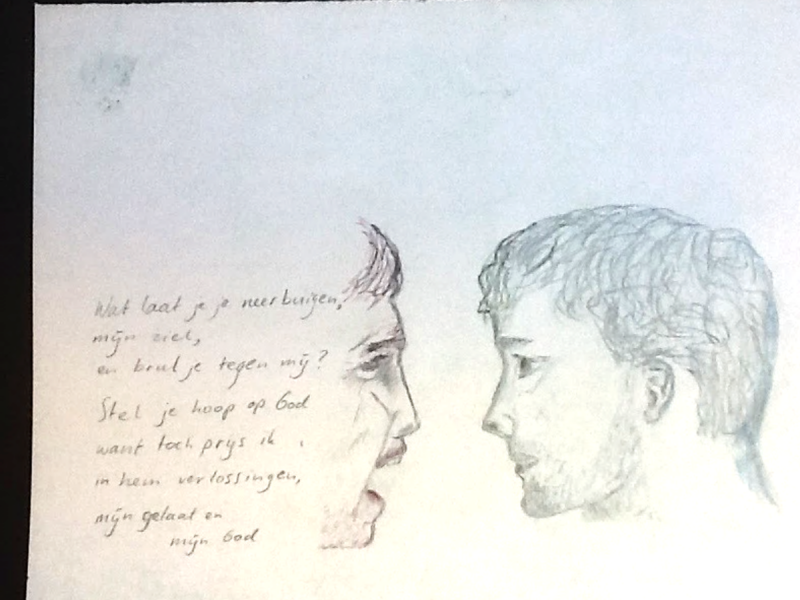 Wat laat je je neerbuigen,
mijn ziel,
en brul je tegen mij?
Stel je hoop op God
want toch prijs ik
in hem verlossingen,
mijn gelaat en
mijn God